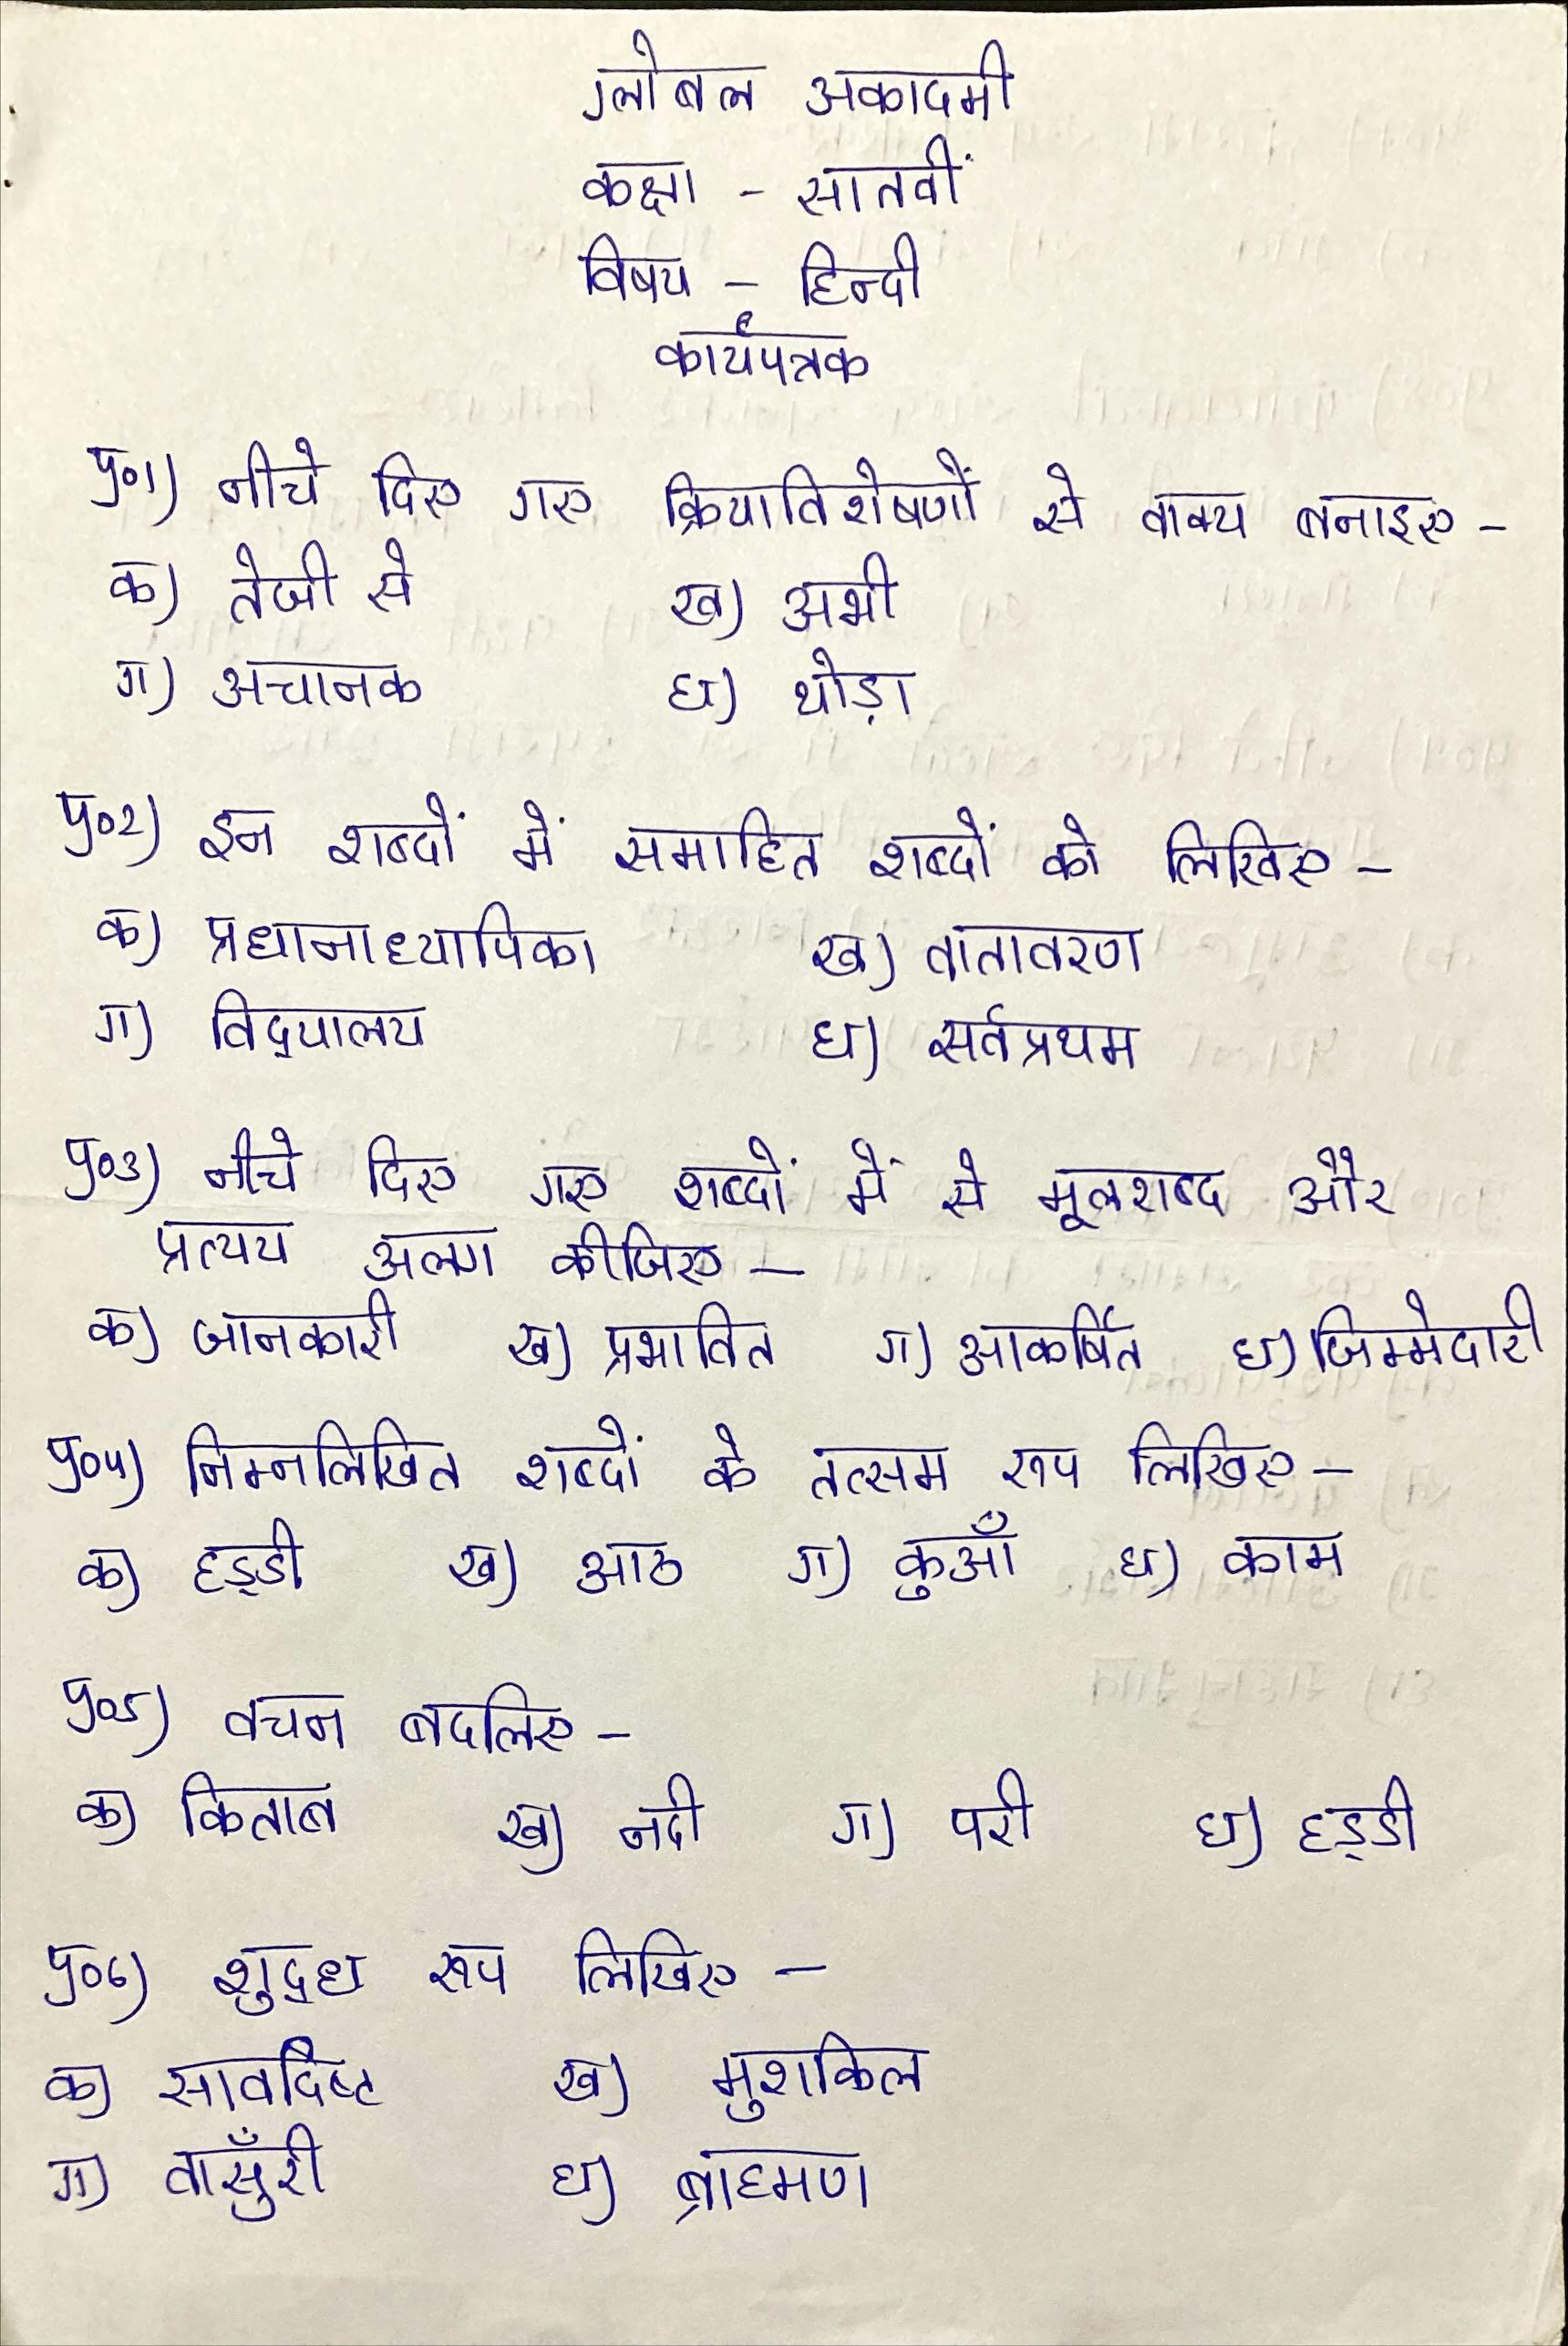 ग्लोबल अकादमी
कक्षा - सातवीं
विषय - हिन्दी
कार्यपत्रक
प्र०1) नीचे दिए गए क्रियाविशेषणों से वाक्य बनाइए -
क) तेजी से ख) अभी
ग) अचानक घ) थोड़ा
प्र०2) इन शब्दों में समाहित शब्दों को लिखिए -
क) प्रधानाध्यापिका ख) वातावरण
ग) विद्यालय घ) सर्वप्रथम
प्र०3) नीचे दिए गए शब्दों में से मूलशब्द और
प्रत्यय अलग कीजिए -
क) जानकारी ख) प्रभावित ग) आकर्षित घ) जिम्मेदारी
प्र०4) निम्नलिखित शब्दों के तत्सम रूप लिखिए -
क) हड्डी ख) आठ ग) कुआँ घ) काम
प्र०5) वचन बदलिए -
क) किताब ख) नदी ग) परी घ) हड्डी
प्र०6) शुद्ध रूप लिखिए -
क) सावदिष्ट ख) मुशकिल
ग) वासुँरी घ) ब्राहमण